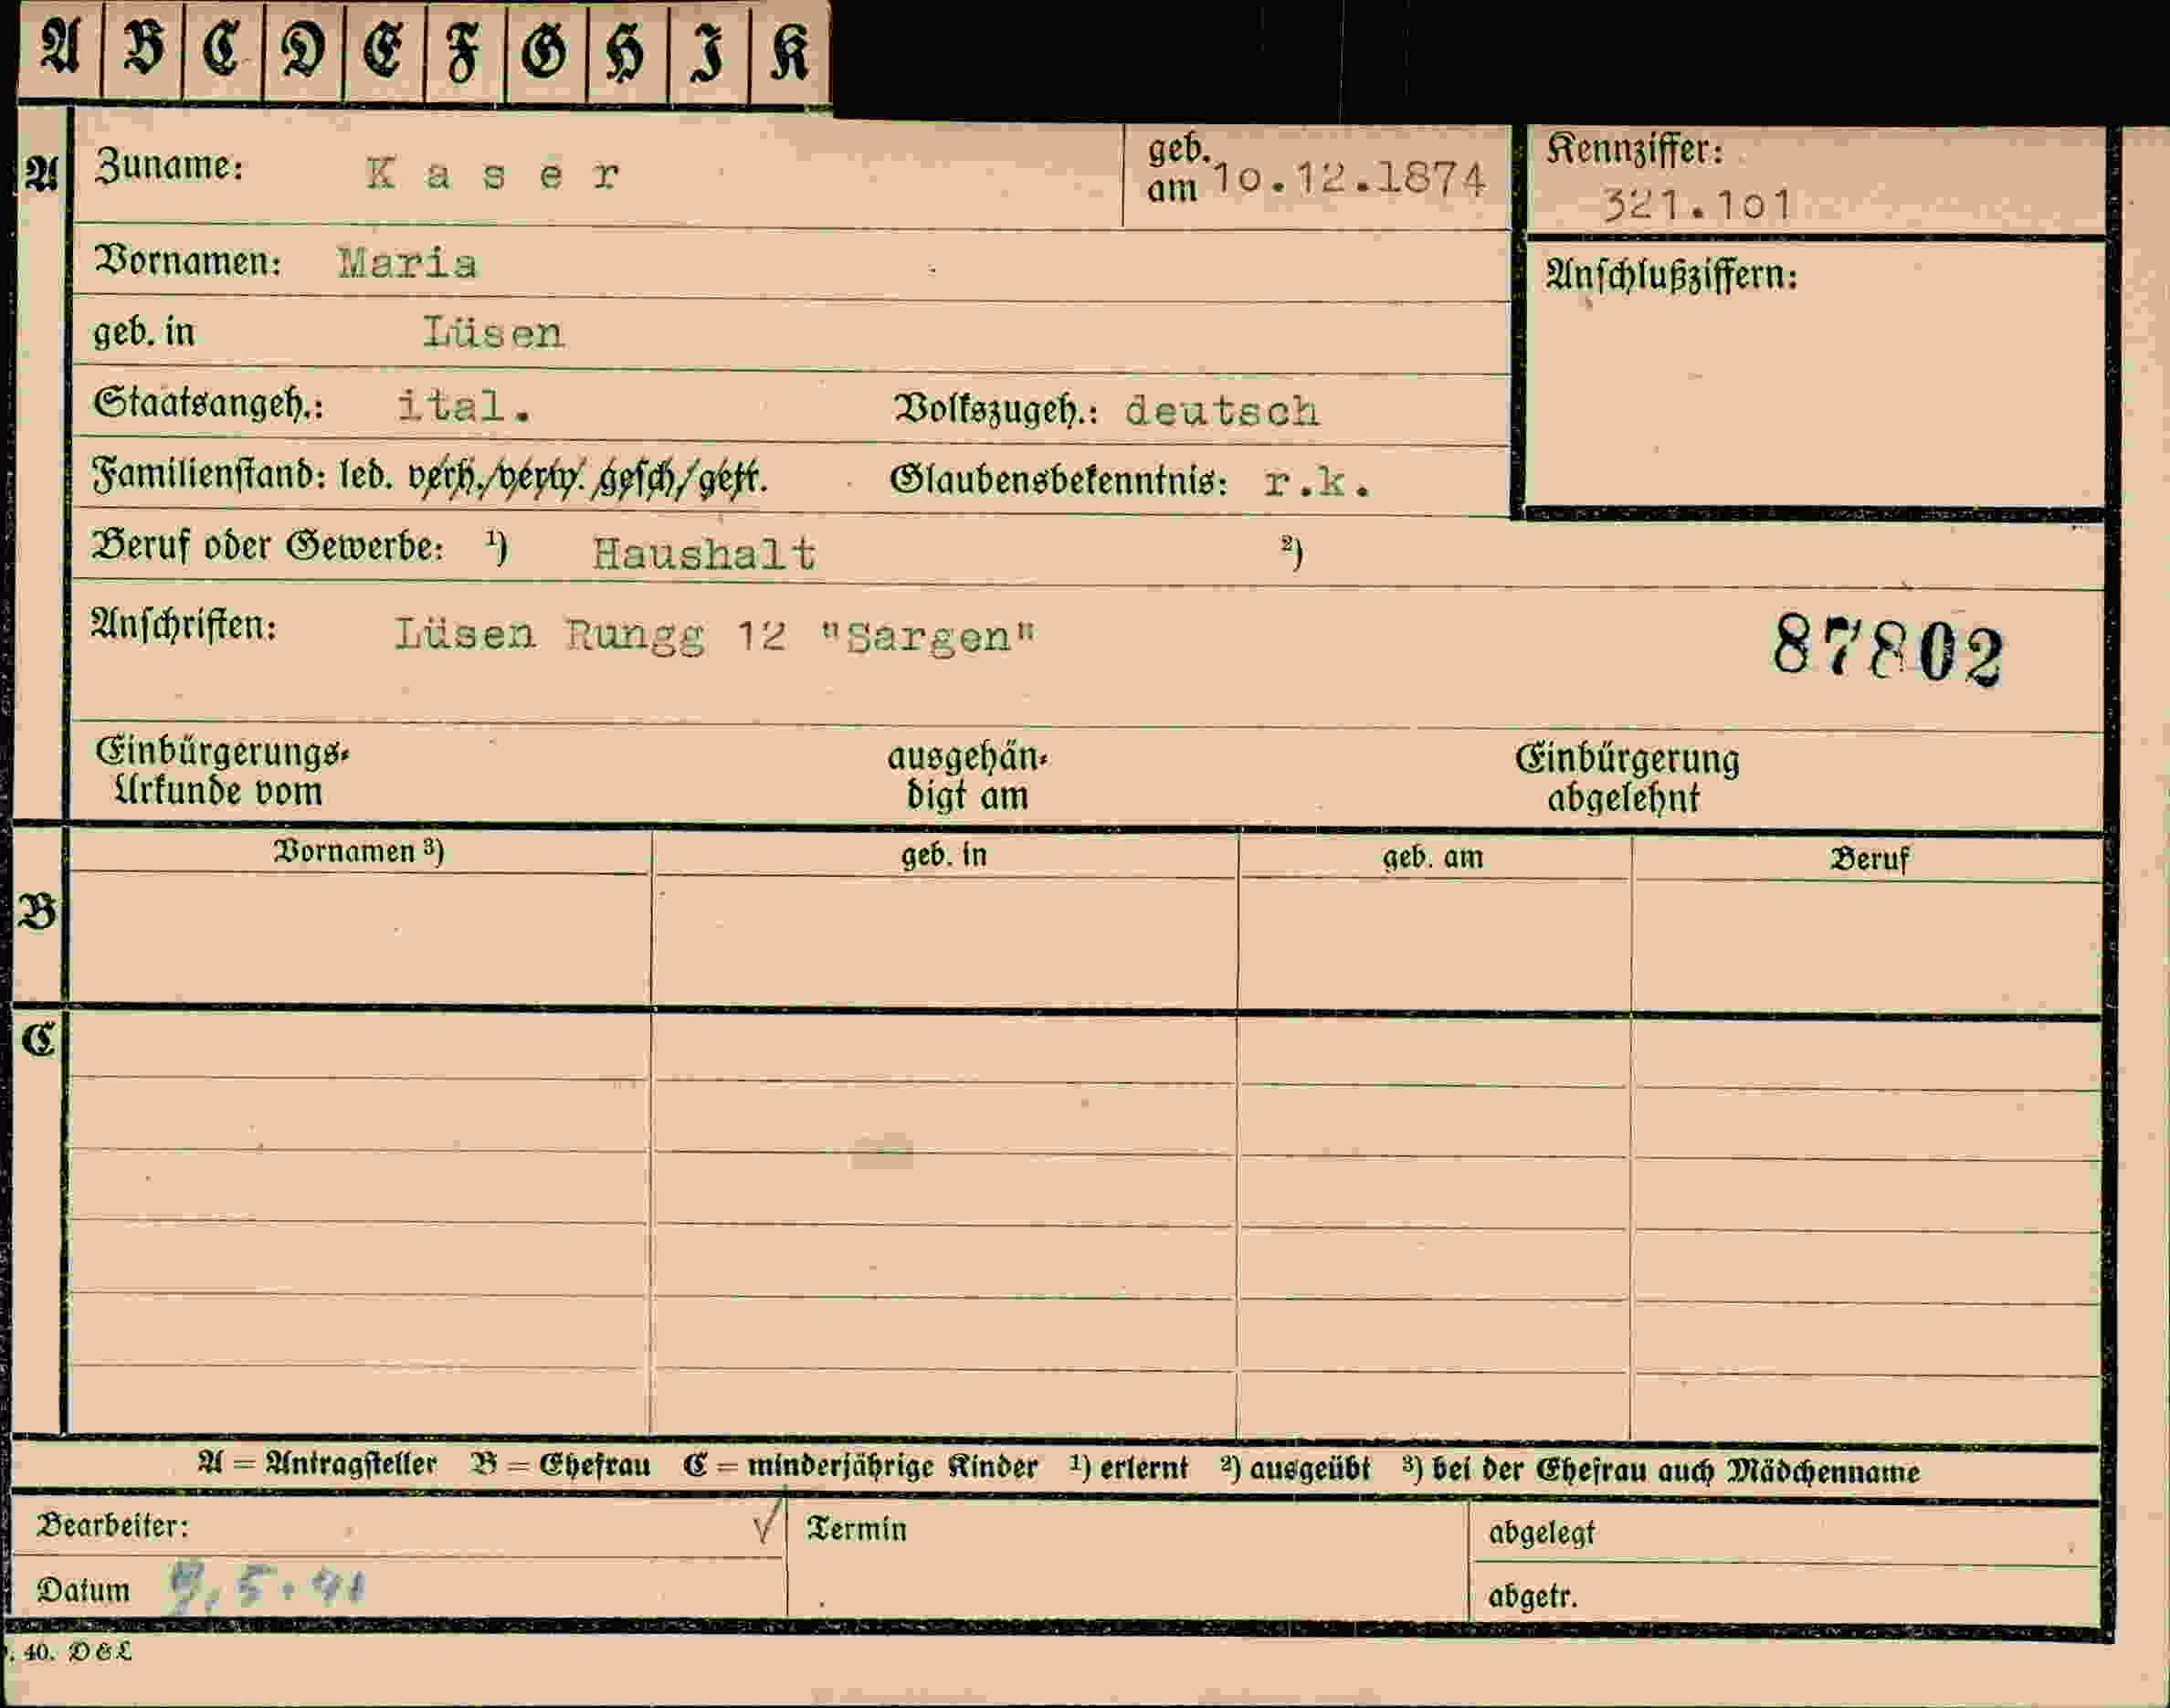 A B C D E F G H I K
A Zuname: Kaser geb. am 10.12.1874 Kennziffer: 321.101
Vornamen: Maria Anschlußziffern:
geb. in Lüsen
Staatsangeh.: ital. Volkszugeh.: deutsch
Familienstand: led. verh./verw. gesch/getr. Glaubensbekenntnis: r.k.
Beruf oder Gewerbe: ¹) Haushalt ²)
Anschriften: Lüsen Rungg 12 "Sargen" 87802
Einbürgerungs- ausgehän- Einbürgerung
Urkunde vom digt am abgelehnt
Vornamen ³) geb. in geb. am Beruf
B
C
A = Antragsteller B = Ehefrau C = minderjährige Kinder ¹) erlernt ²) ausgeübt ³) bei der Ehefrau auch Mädchenname
Bearbeiter: √ Termin abgelegt
Datum 5.41 abgetr.
40. D&L